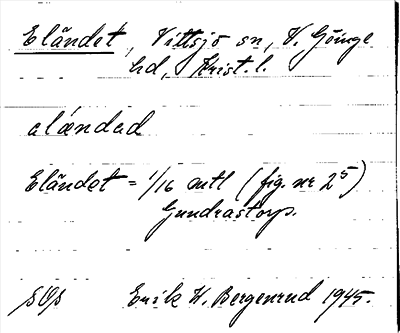 Eländet, Vittsjö sn, V. Göinge
hd, Krist. l.
eländad
Eländet = 1/16 mtl (fig. nr 25)
Gundrastorp.
Erik W. Bergenrud 1945.